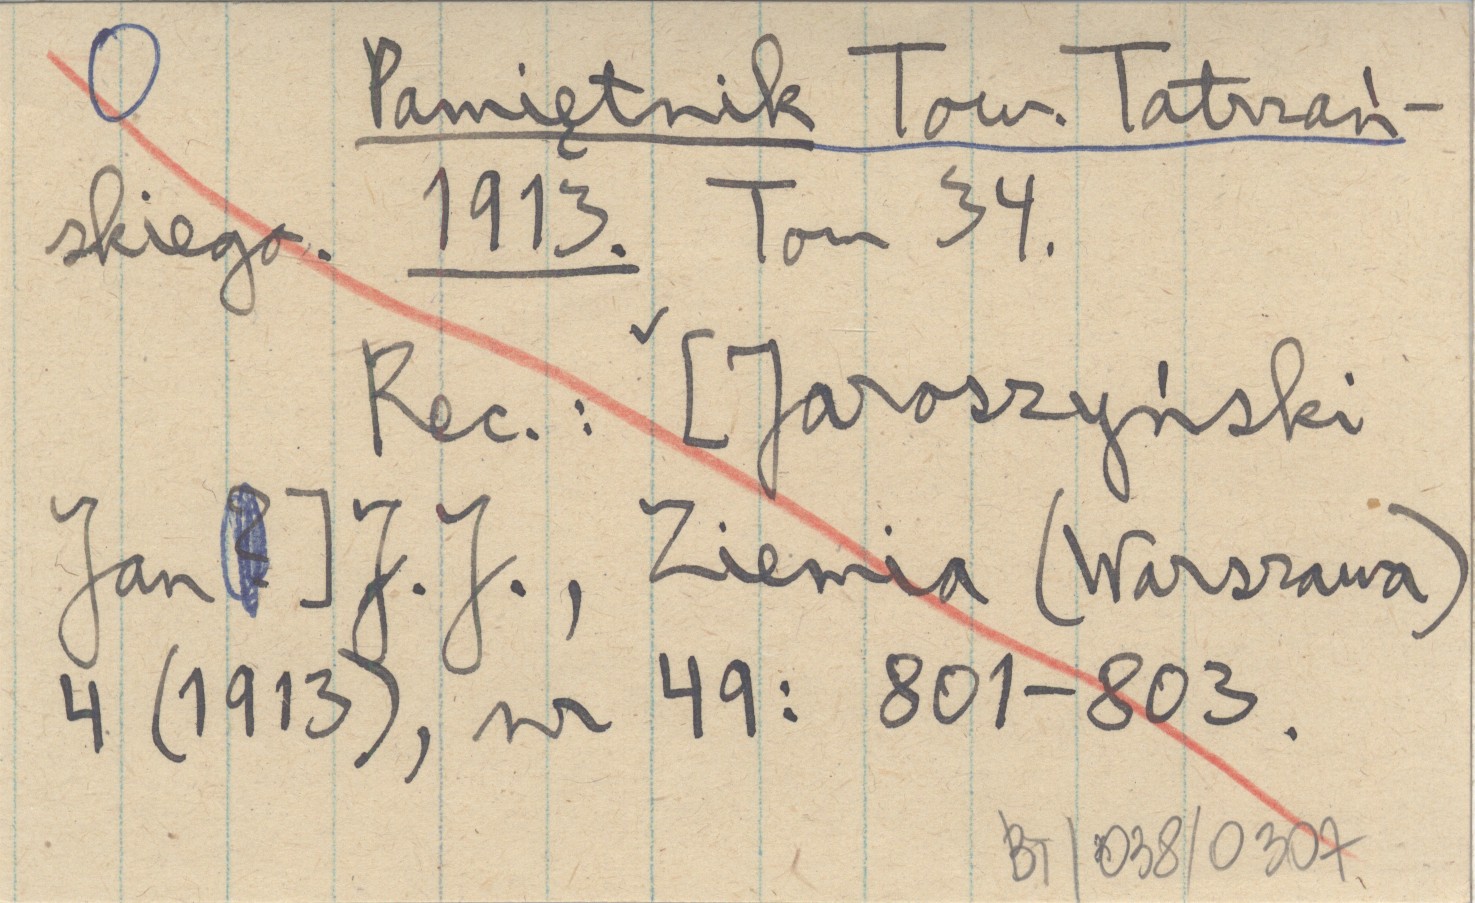 O Pamiętnik Tow. Tatrzań-
skiego. 1913. Tom 34.
Rec.: [Jaroszyński
Jan ] J. J., Ziemia (Warszawa)
4 (1913), nr 49: 801–803.
BT/038/0307